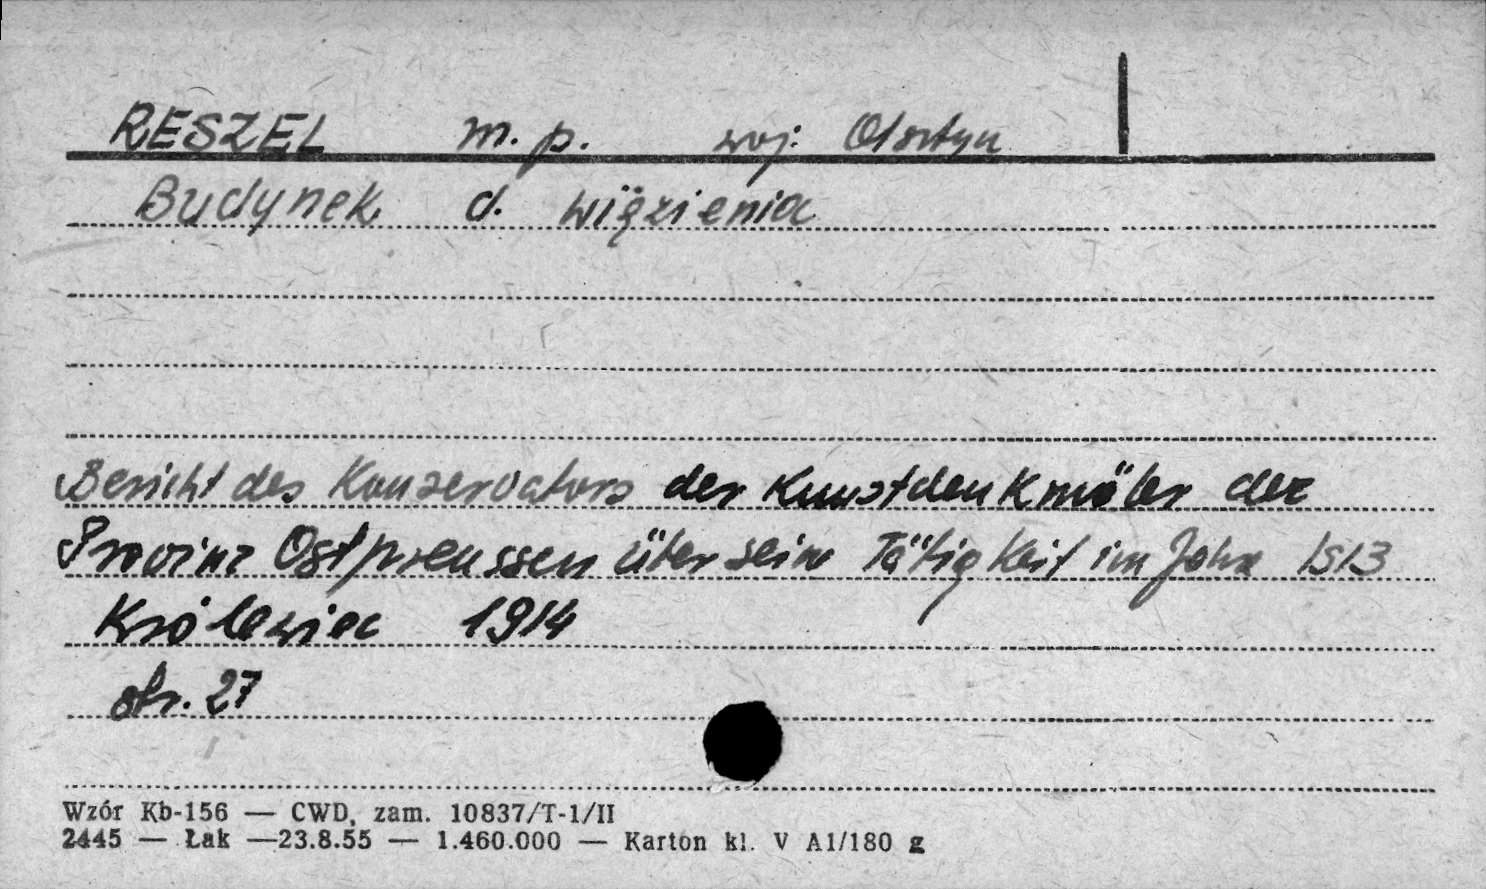 RESZEL m. p. woj. Olsztyn
Budynek d. więzienia
Bericht des Konservators der Kunstdenkmäler der
Provinz Ostpreussen über seine Tätigkeit im Jahre 1913
Królewiec 1914
str. 27
Wzór Kb-156 — CWD, zam. 10837/T-1/II
2445 — Łak —23.8.55 — 1.460.000 — Karton kl. V A1/180 g